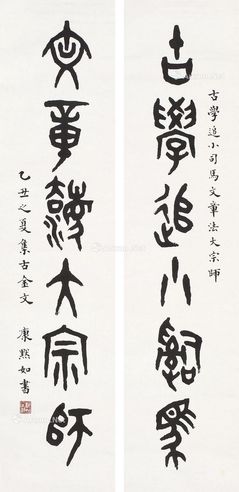 古學追小司馬
古學追小司馬文章法大宗師
文章法大宗師
乙丑之夏集古金文 康熙如書